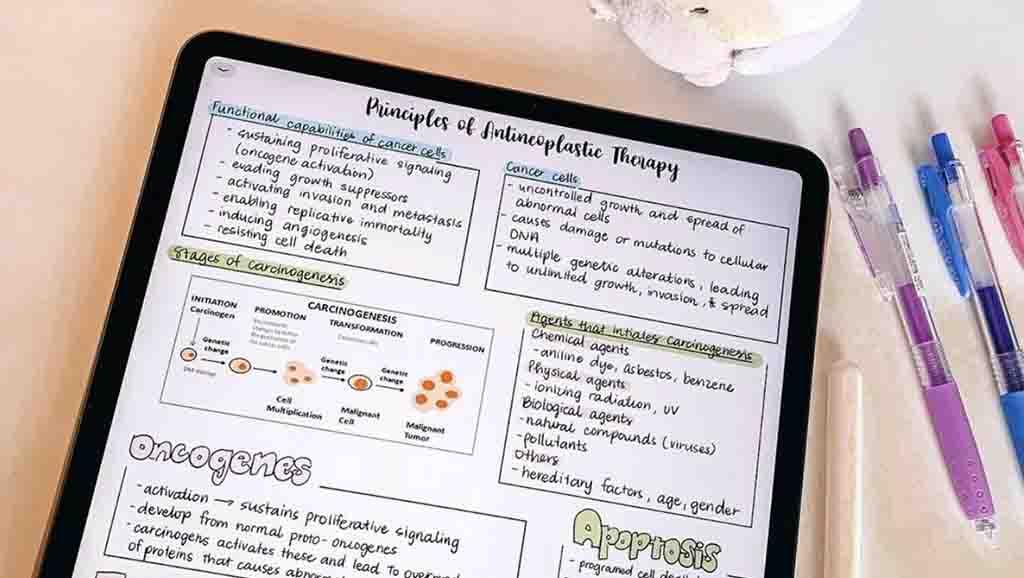 Principles of Antineoplastic Therapy
Functional capabilities of cancer cells
- sustaining proliferative signaling
(oncogene activation)
- evading growth suppressors
- activating invasion and metastasis
- enabling replicative immortality
- inducing angiogenesis
- resisting cell death
Cancer cells
- uncontrolled growth and spread of
abnormal cells
- causes damage or mutations to cellular
DNA
- multiple genetic alterations, leading
to unlimited growth, invasion, & spread
Stages of carcinogenesis
CARCINOGENESIS
INITIATION
Carcinogen
PROMOTION
TRANSFORMATION
PROGRESSION
Genetic
change
Genetic
change
Genetic
change
Cell
Multiplication
Malignant
Cell
Malignant
Tumor
Agents that intiales carcinogenesis
Chemical agents
- aniline dye, asbestos, benzene
Physical agents
- ionizing radiation, UV
Biological agents
- natural compounds (viruses)
- pollutants
Others
- hereditary factors, age, gender
Oncogenes
- activation → sustains proliferative signaling
- develop from normal proto-oncogenes
- carcinogens activates these and lead to
of proteins that causes
Apoptosis
- programed cell